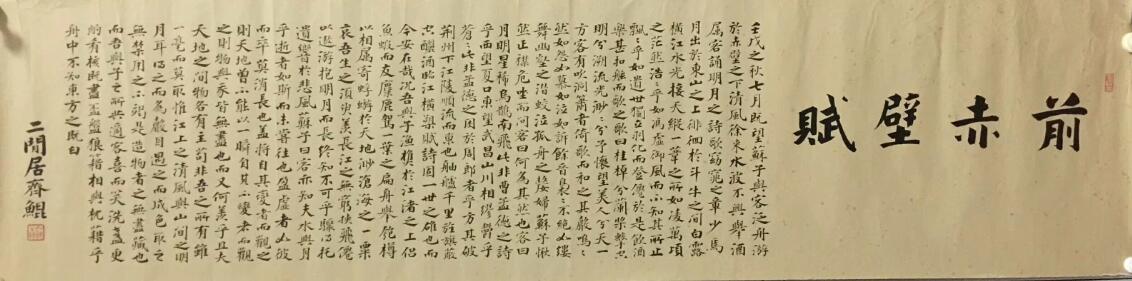 前赤壁賦
壬戌之秋七月既望蘇子與客泛舟游
於赤壁之下清風徐來水波不興舉酒
属客誦明月之詩歌窈窕之章少焉
月出於東山之上徘徊於斗牛之間白露
橫江水光接天縱一葦之所如凌萬頃
之茫然浩浩乎如馮虛御風而不知其所止
飄飄乎如遺世獨立羽化而登僊於是飲酒
樂甚扣舷而歌之歌曰桂棹兮蘭槳擊空
明兮溯流光渺渺兮予懷望美人兮天一
方客有吹洞簫者倚歌而和之其聲嗚嗚
然如怨如慕如泣如訴餘音裊裊不絕如縷
舞幽壑之潛蛟泣孤舟之嫠婦蘇子愀
然正襟危坐而問客曰何為其然也客曰
月明星稀烏鵲南飛此非曹孟德之詩
乎西望夏口東望武昌山川相繆鬱乎
蒼蒼此非孟德之困於周郎者乎方其破
荊州下江陵順流而東也舳艫千里旌旗蔽
空釃酒臨江橫槊賦詩固一世之雄也而
今安在哉況吾與子漁樵於江渚之上侶
魚蝦而友麋鹿駕一葉之扁舟舉匏樽
以相属寄蜉蝣於天地渺滄海之一粟
哀吾生之須臾羨長江之無窮挾飛僊
以遨游抱明月而長終知不可乎驟得托
遺響於悲風蘇子曰客亦知夫水與月
乎逝者如斯而未嘗往也盈虛者如彼
而卒莫消長也蓋將自其變者而觀之
則天地曾不能以一瞬自其不變者而觀
之則物與我皆無盡也而又何羨乎且夫
天地之間物各有主苟非吾之所有雖
一毫而莫取惟江上之清風與山間之明
月耳得之而為聲目遇之而成色取之
無禁用之不竭是造物者之無盡藏也
而吾與子之所共適客喜而笑洗盞更
酌肴核既盡盃盤狼籍相與枕籍乎
舟中不知東方之既白
二閒居齋鯤